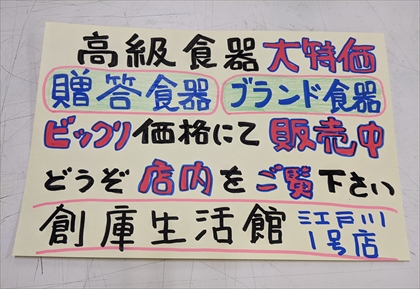 高級食器大特価
贈答食器 ブランド食器
ビックリ価格にて販売中
どうぞ店内をご覧下さい
創庫生活館 江戸川
1号店